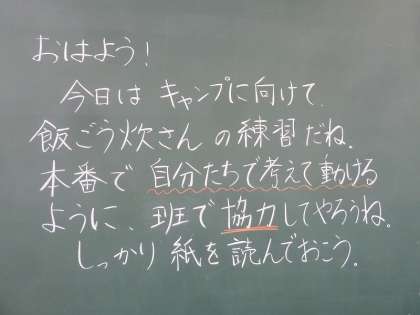 おはよう！
今日は キャンプに向けて、
飯ごう炊さん の練習だね。
本番で 自分たちで考えて動ける
ように、班で 協力してやろうね。
しっかり 紙を読んでおこう。